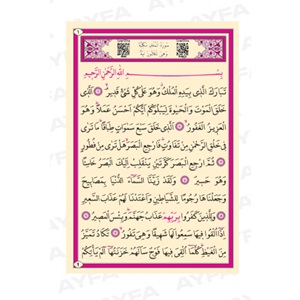 سورة الملك مكية
وهي ثلاثون آية
بِسْمِ اللّٰهِ الرَّحْمٰنِ الرَّحِيمِ
تَبَارَكَ الَّذِي بِيَدِهِ الْمُلْكُ وَهُوَ عَلٰى كُلِّ شَيْءٍ قَدِيرٌ ۞ اَلَّذِي
خَلَقَ الْمَوْتَ وَالْحَيٰوةَ لِيَبْلُوَكُمْ اَيُّكُمْ اَحْسَنُ عَمَلًا وَهُوَ
الْعَزِيزُ الْغَفُورُ ۞ اَلَّذِي خَلَقَ سَبْعَ سَمٰوَاتٍ طِبَاقًا مَا تَرٰى
فِي خَلْقِ الرَّحْمٰنِ مِنْ تَفَاوُتٍ فَارْجِعِ الْبَصَرَ هَلْ تَرٰى مِنْ فُطُورٍ
۞ ثُمَّ ارْجِعِ الْبَصَرَ كَرَّتَيْنِ يَنْقَلِبْ اِلَيْكَ الْبَصَرُ خَاسِئًا
وَهُوَ حَسِيرٌ ۞ وَلَقَدْ زَيَّنَّا السَّمَاءَ الدُّنْيَا بِمَصَابِيحَ
وَجَعَلْنَاهَا رُجُومًا لِلشَّيَاطِينِ وَاَعْتَدْنَا لَهُمْ عَذَابَ السَّعِيرِ
۞ وَلِلَّذِينَ كَفَرُوا بِرَبِّهِمْ عَذَابُ جَهَنَّمَ وَبِئْسَ الْمَصِيرُ ۞
اِذَا اُلْقُوا فِيهَا سَمِعُوا لَهَا شَهِيقًا وَهِيَ تَفُورُ ۞ تَكَادُ تَمَيَّزُ
مِنَ الْغَيْظِ كُلَّمَا اُلْقِيَ فِيهَا فَوْجٌ سَاَلَهُمْ خَزَنَتُهَا اَلَمْ يَاْتِكُمْ
AYFA